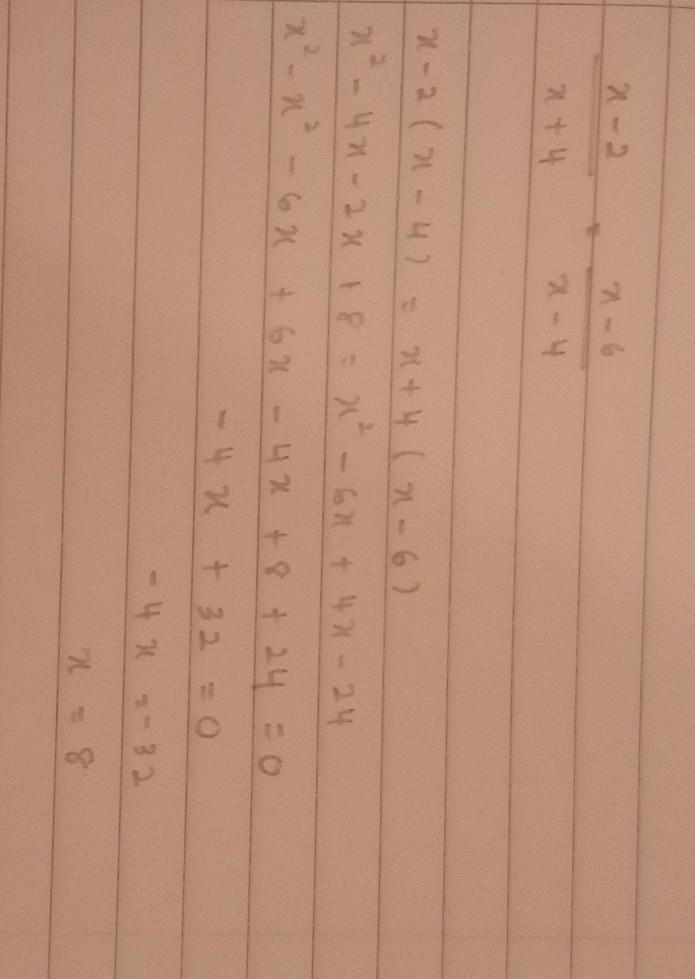 x-2 = x-6
x+4   x-4
x-2(x-4) = x+4(x-6)
x² - 4x - 2x + 8 = x² - 6x + 4x - 24
x² - x² - 6x + 6x - 4x + 8 + 24 = 0
-4x + 32 = 0
-4x = -32
x = 8